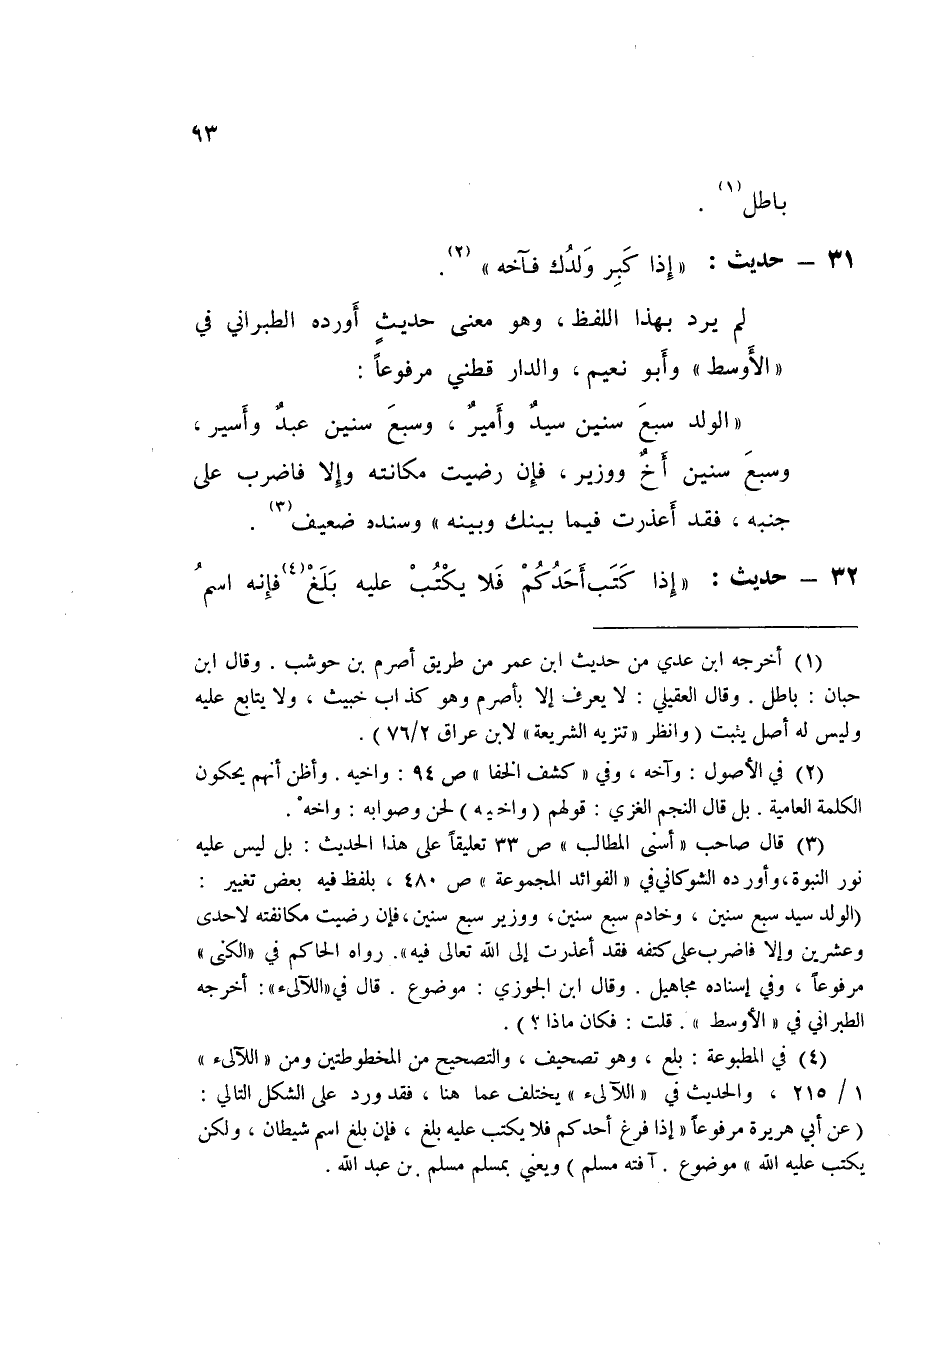 ٩٣
باطل(١) .
٣١ – حديث : « إِذا كَبِر وَلَدُك فآخه »(٢).
لم يرد بهذا اللفظ ، وهو معنى حديثٍ أَورده الطبراني في
« الأَوسط » وأَبو نعيم ، والدار قطني مرفوعاً :
« الولد سبعَ سنين سيدٌ وأَميرٌ ، وسبعَ سنين عبدٌ وأَسير ،
وسبعَ سنين أَخٌ ووزير ، فإِن رضيت مكانته وإِلا فاضرب على
جنبه ، فقد أَعذرت فيما بينك وبينه » وسنده ضعيف(٣) .
٣٢ – حديث : « إِذا كَتَب أَحَدُكُمْ فَلا يكْتُبْ عليه بَلَغْ(٤) فإِنه اسمُ
(١) أخرجه ابن عدي من حديث ابن عمر من طريق أصرم بن حوشب . وقال ابن
حبان : باطل . وقال العقيلي : لا يعرف إلا بأصرم وهو كذاب خبيث ، ولا يتابع عليه
وليس له أصل يثبت ( وانظر « تنزيه الشريعة » لابن عراق ٧٦/٢ ) .
(٢) في الأصول : وآخه ، وفي « كشف الخفا » ص ٩٤ : واخيه . وأظن أنهم يحكون
الكلمة العامية . بل قال النجم الغزي : قولهم ( واخيه ) لحن وصوابه : واخهْ .
(٣) قال صاحب « أسنى المطالب » ص ٣٣ تعليقاً على هذا الحديث : بل ليس عليه
نور النبوة ، وأورده الشوكاني في « الفوائد المجموعة » ص ٤٨٠ ، بلفظ فيه بعض تغيير :
(الولد سيد سبع سنين ، وخادم سبع سنين، ووزير سبع سنين، فإن رضيت مكانفته لاحدى
وعشرين وإلا فاضرب على كتفه فقد أعذرت إلى الله تعالى فيه». رواه الحاكم في «الكنى»
مرفوعاً ، وفي إسناده مجاهيل . وقال ابن الجوزي : موضوع . قال في «اللآلىء»: أخرجه
الطبراني في « الأوسط » . قلت : فكان ماذا ؟ ) .
(٤) في المطبوعة : بلع ، وهو تصحيف ، والتصحيح من المخطوطتين ومن « اللآلىء »
١ / ٢١٥ ، والحديث في « اللآلىء » يختلف عما هنا ، فقد ورد على الشكل التالي :
( عن أبي هريرة مرفوعاً « إذا فرغ أحدكم فلا يكتب عليه بلغ ، فإن بلغ اسم شيطان ، ولكن
يكتب عليه الله » موضوع . آفته مسلم ) ويعني بمسلم مسلم بن عبد الله .